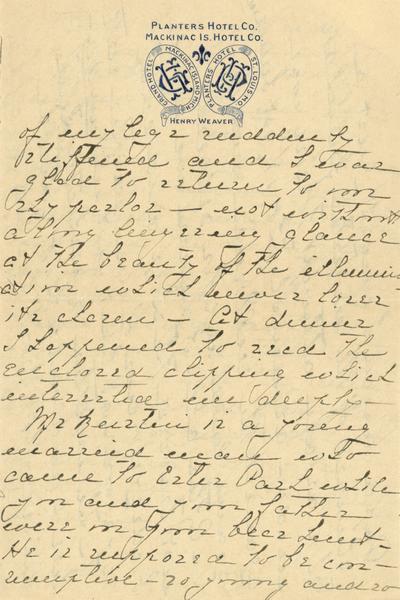 PLANTERS HOTEL CO.
MACKINAC IS. HOTEL CO.
GRAND HOTEL MACKINAC ISLAND MICH.
PLANTERS HOTEL ST. LOUIS MO.
HENRY WEAVER
of my legs suddenly
stiffened and I was
glad to return to
parlor – not without
a long lingering glance
at the beauty of the illumin
ation which never loses
its charm – At dinner
I happened to read the
enclosed clipping which
interested me deeply –
Mr is a young
married man who
came to Estes Park while
you and your father
were on your bear hunt
He is supposed to be con-
sumptive – so young and so